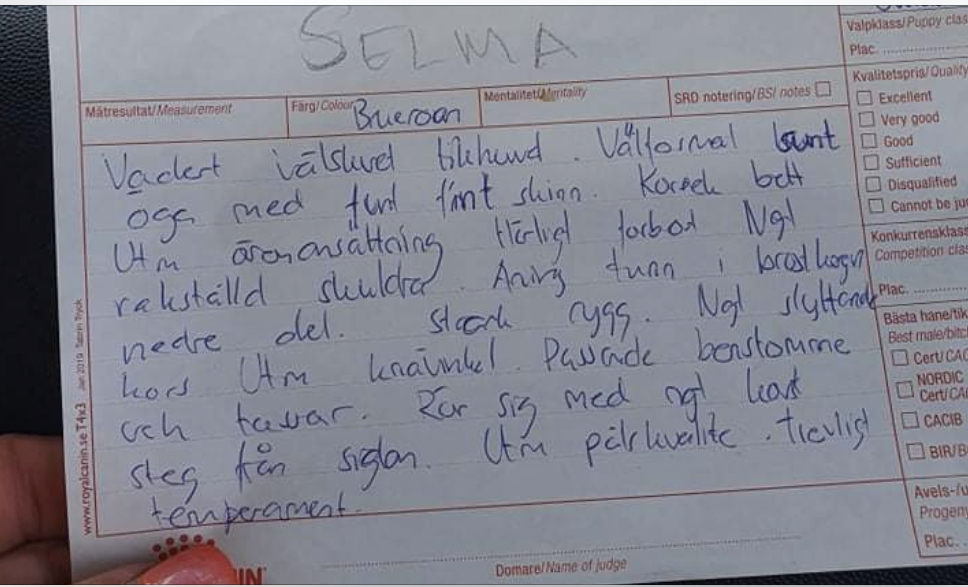 SELMA
Valpklass/Puppy clas
Plac.
Mätresultat/Measurement
Färg/Colour Blueroan
Mentalitet/Mentality
SRD notering/BSI notes
Kvalitetspris/Quality
Excellent
Very good
Good
Sufficient
Disqualified
Cannot be ju
Konkurrensklass
Competition clas
Plac.
Bästa hane/tik
Best male/bitch
Cert/CAC
NORDIC
Cert/CA
CACIB
BIR/B
Avels-/u
Progeny
Plac.
Vackert välskuret tikhuvud. Välformat
öga med fint skinn. Korrekt bett
Utm öronansättning Härligt förbröst Ngt
rakställd skuldra. Aning tunn i bröstkorgen
nedre del. Stark rygg. Ngt sluttande
kors Utm knävinkel. Passande benstomme
och tassar. Rör sig med ngt kort
steg från sidan. Utm pälskvalite. trevligt
temperament.
www.royalcanin.se T4x3 Jan 2019
IN
Domare/Name of judge